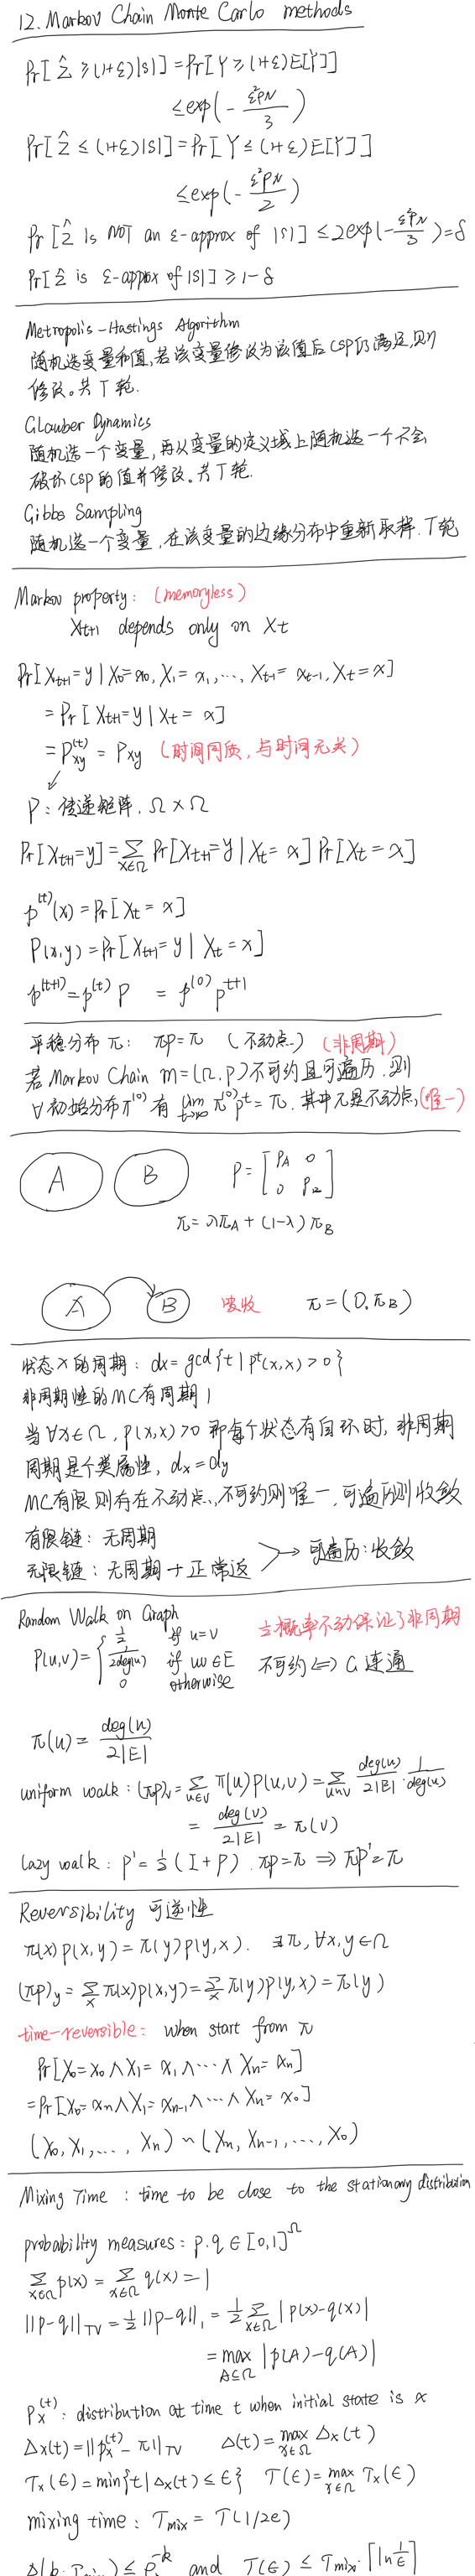 12. Markov Chain Monte Carlo methods
Pr[ Ẑ ≥ (1+ε)|S| ] = Pr[ Y ≥ (1+ε)E[Y] ]
≤ exp( - ε²pN / 3 )
Pr[ Ẑ ≤ (1+ε)|S| ] = Pr[ Y ≤ (1+ε)E[Y] ]
≤ exp( - ε²pN / 2 )
Pr [ Ẑ is NOT an ε-approx of |S| ] ≤ 2exp( - ε²pN / 3 ) = δ
Pr[ Ẑ is ε-approx of |S| ] ≥ 1-δ
Metropolis-Hastings Algorithm
随机选变量和值,若该变量修改为该值后CSP仍满足,则
修改。共T轮.
Glauber Dynamics
随机选一个变量,再从变量的定义域上随机选一个不会
破坏CSP的值并修改。共T轮.
Gibbs Sampling
随机选一个变量,在该变量的边缘分布中重新取样.T轮
Markov property: (memoryless)
Xt+1 depends only on Xt
Pr[ Xt+1=y | X0=x0, X1=x1, ..., Xt-1=xt-1, Xt=x ]
= Pr[ Xt+1=y | Xt=x ]
= Pxy^(t) = Pxy (时间同质,与时间无关)
P: 传递矩阵. Ω×Ω
Pr[Xt+1=y] = Σx∈Ω Pr[Xt+1=y | Xt=x] Pr[Xt=x]
p^(t)(x) = Pr[ Xt=x ]
P(x,y) = Pr[ Xt+1=y | Xt=x ]
p^(t+1) = p^(t) P = p^(0) P^t+1
平稳分布 π: πP=π (不动点) (非周期)
若 Markov Chain m=(Ω,P) 不可约且可遍历,则
∀初始分布π^(0) 有 lim t→∞ π^(0)P^t = π. 其中π是不动点,(唯一)
A B P = [ PA 0
0 PB ]
π = λπA + (1-λ)πB
A B 吸收 π = (0, πB)
状态x的周期: dx = gcd{ t | P^t(x,x) > 0 }
非周期性的MC有周期1
当∀x∈Ω, P(x,x)>0 即每个状态有自环时, 非周期
周期是个类属性, dx=dy
MC有限则存在不动点,不可约则唯一,可遍历则收敛
有限链: 无周期
无限链: 无周期+正常返 → 可遍历:收敛
Random Walk on Graph
P(u,v) = { 1/2 if u=v ½概率不动保证了非周期
1/2deg(u) if uv∈E 不可约 ⇔ G连通
0 otherwise
π(u) = deg(u) / 2|E|
uniform walk: (πP)v = Σu∈V π(u)P(u,v) = Σu~v deg(u)/2|E| · 1/deg(u)
= deg(v)/2|E| = π(v)
lazy walk: P' = ½(I+P). πP=π ⇒ πP'=π
Reversibility 可逆性
π(x)P(x,y) = π(y)P(y,x). ∃π, ∀x,y∈Ω
(πP)y = Σx π(x)P(x,y) = Σx π(y)P(y,x) = π(y)
time-reversible: when start from π
Pr[X0=x0 ∧ X1=x1 ∧ ... ∧ Xn=xn]
= Pr[X0=xn ∧ X1=xn-1 ∧ ... ∧ Xn=x0]
(X0, X1, ..., Xn) ~ (Xn, Xn-1, ..., X0)
Mixing Time: time to be close to the stationary distribution
probability measures: p.q ∈ [0,1]^Ω
Σx∈Ω p(x) = Σx∈Ω q(x) = 1
||p-q||TV = ½||p-q||1 = ½ Σx∈Ω |p(x)-q(x)|
= max A⊆Ω |p(A)-q(A)|
Px^(t): distribution at time t when initial state is x
Δx(t) = ||px^(t) - π||TV Δ(t) = max x∈Ω Δx(t)
τx(ε) = min{t | Δx(t) ≤ ε} τ(ε) = max x∈Ω τx(ε)
mixing time: τmix = τ(1/2e)
Δ(k·τmix) ≤ e^-k and τ(ε) ≤ τmix·⌈ln 1/ε⌉